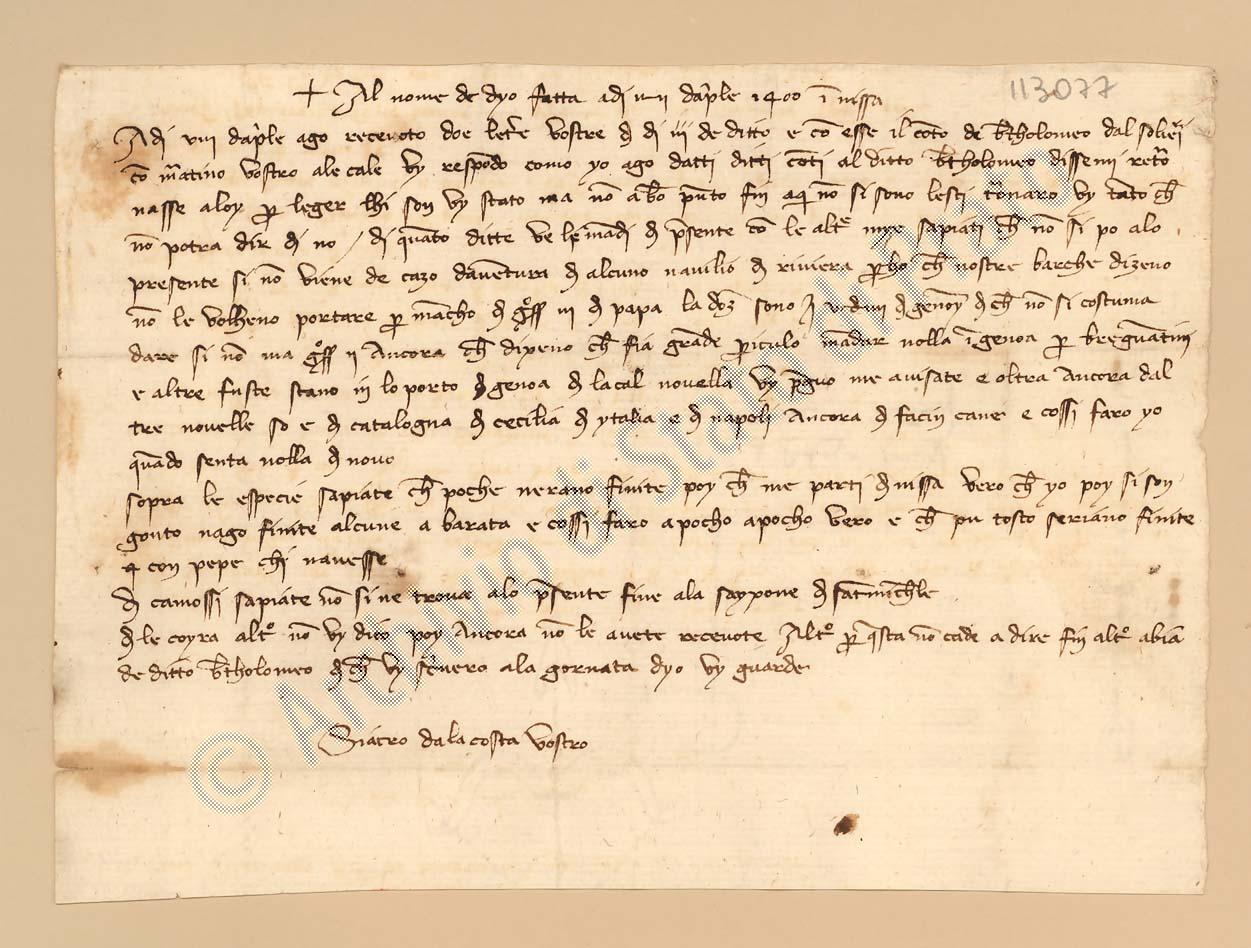 113077
+ Al nome de dyo fatta adj viiij d'aprile 1400 in nissa
Adj viii d'aprile ago recevoto doe letere vostre de dj iij de ditto e con esse il conto de bertholomeo dal
con martino vostro ale cale vy respondo como yo ago datti ditti conti al ditto bertholomeo dissemi
nasse aloy per leger lhi son vy stato ma non abo ponto fin aqi non si sono lesti tornaro vy tanto che
non potra dir di no / di quanto ditte ve lo mandi de presente con le altre mye sapiati che non si po alo
presente si non viene de cazo daventura de alcuno navilio de riviera perho che nostre barche dizeno
non le volheno portare per mancho de grossi iij de papa la doz sono de genoy de che non si costuma
dare si non ma grossi ij Ancora che dixeno che sia grande periculo mandar nolla in genoa per breguantini
e altre fuste stano in lo porto de genoa de lacal novella vy prego me avisate e oltra Ancora dal
tre novelle so e de catalogna de cecilia de ytalia e de napoli Ancora de facin cane e cossi faro yo
quando senta nolla de novo
sopra le especie sapiate che poche nerano finite poy che me parti de nissa vero che yo poy si son
gonto nago finite alcune a barata e cossi faro apocho apocho vero e che pu tosto seriano finite
con pepe chi navesse
De camossi sapiate non si ne trova alo presente fine ala saxone de
De le coyra altro non vy dico poy Ancora non le avete recevote Altro per questa non cade a dire fin altro abia
de ditto bertholomeo de che vy scrivero ala gornata dyo vy guarde
Siacro dala costa vostro
© Archivio di Stato di Prato